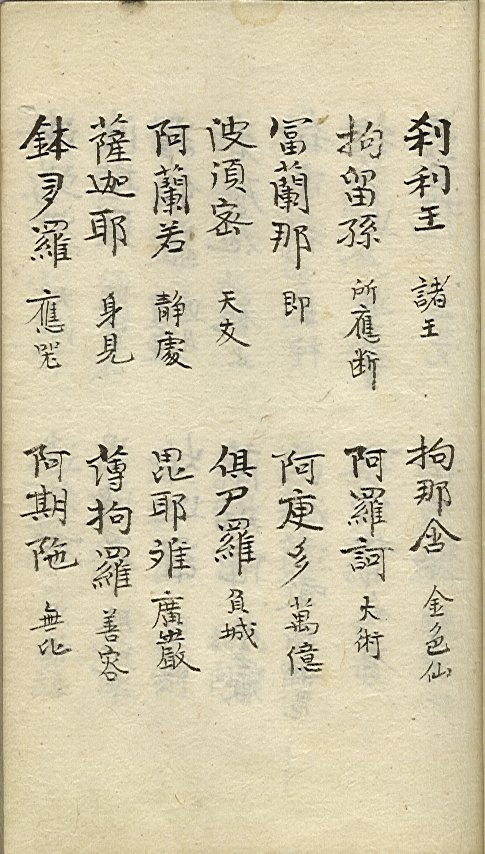 刹利王 諸王 拘那含 金色仙
拘留孫 所應断 阿羅訶 大術
冨蘭那 即 阿庾多 萬億
波須蜜 天友 俱尸羅 負城
阿蘭若 静處 毘耶離 廣嚴
薩迦耶 身見 薄拘羅 善容
鉢多羅 應器 阿期陁 無比